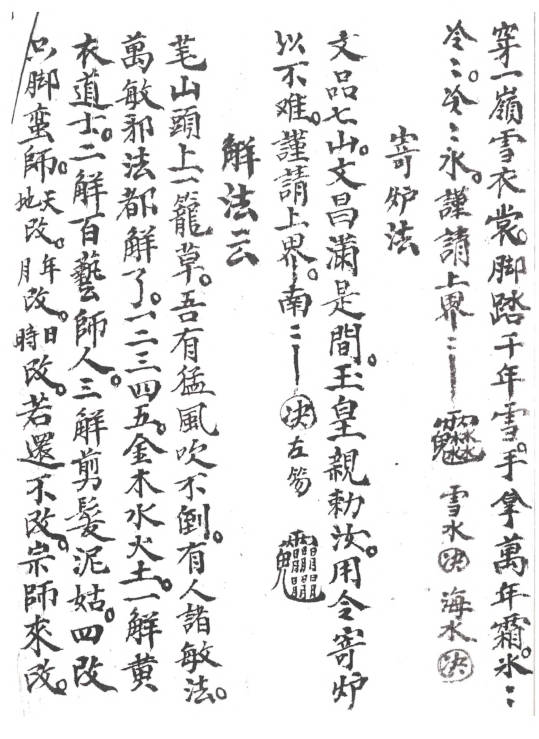 穿一嶺雪衣裳。脚踏千年雪。手拿萬年霜。氷〻
冷〻。冷〻氷。謹請上界〻
雪水決海水決
寄炉法
文品七山。文昌滿是間。玉皇親勅汝。用令寄炉
以不难。謹請上界。南〻
決左
解法云
茅山頭上一籠草。吾有猛風吹不倒。有人諸敏法。
萬敏邪法都解了。一二三四五。金木水火土。一解黄
衣道士。二解百藝師人。三解剪髮泥姑。四改
只脚蛮師。天改。地改。年改。月改。日改。時改。若還不改。宗師來改。